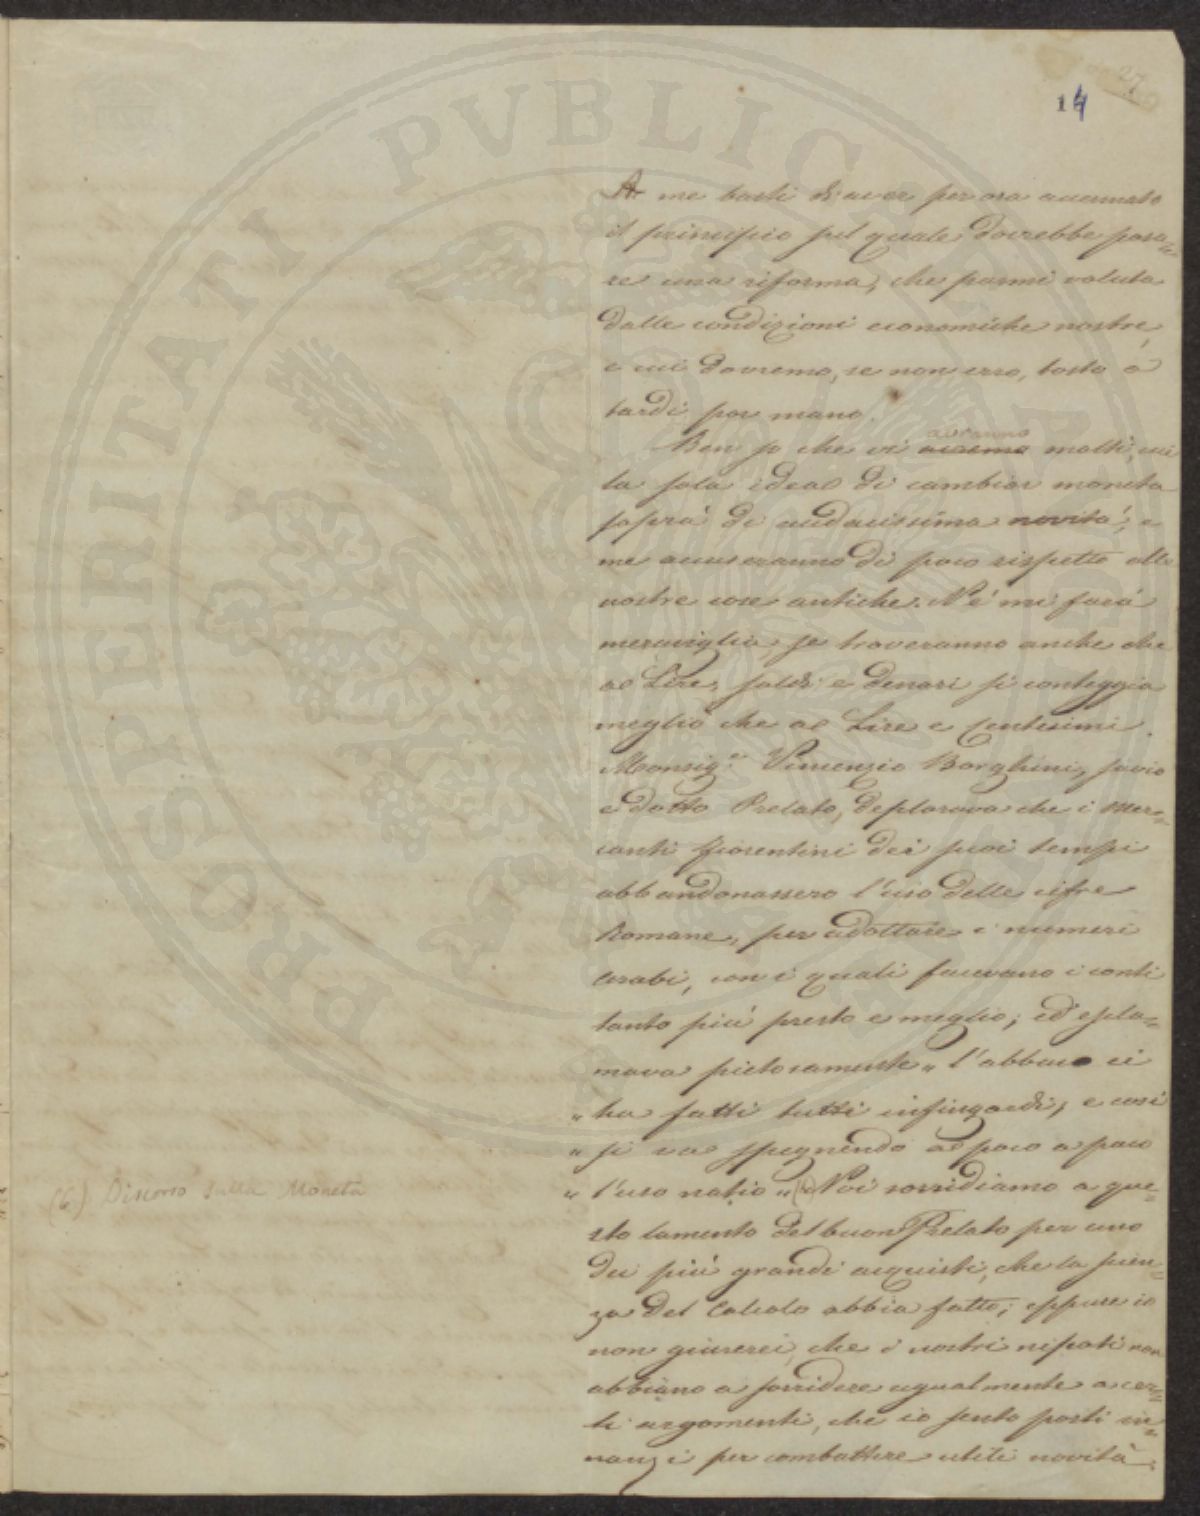 27
14
A me basti di aver per ora accennato
il principio sul quale dovrebbe posa=
re una riforma, che parmi voluta
dalle condizioni economiche nostre,
e cui dovremo, se non erro, tosto o
tardi por mano.
avranno
Ben so che vi molti, cui
la sola idea di cambiar moneta
saprà di audacissima novità, e
me accuseranno di poco rispetto alle
nostre cose antiche. Nè mi farà
meraviglia, se troveranno anche che
a Lire, soldi e denari si conteggia
meglio che a Lire e Centesimi.
Monsig.r Vincenzio Borghini, savio
e dotto Prelato, deplorava che i Mer=
canti fiorentini dei suoi tempi
abbandonassero l'uso delle cifre
Romane, per adottare i numeri
Arabi, con i quali facevano i conti
tanto più presto e meglio; ed escla=
mava pietosamente „ l'abbaco ci
„ ha fatti tutti infingardi, e così
„ si va spegnendo a poco a poco
„ l'uso natio „ (6) Noi sorridiamo a que=
sto lamento del buon Prelato per uno
dei più grandi acquisti, che la scien=
za del Calcolo abbia fatto; eppure io
non giurerei, che i nostri nipoti non
abbiano a sorridere ugualmente a cer=
ti argomenti, che io sento posti in=
nanzi per combattere utili novità.
(6) Discorso sulla Moneta
PROSPERITATI PVBLICAE